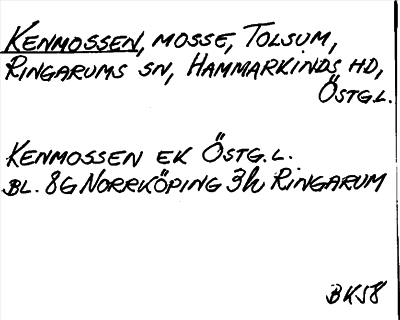 KENMOSSEN, MOSSE, TOLSUM,
RINGARUMS SN, HAMMARKINDS HD,
ÖSTG.L.
KENMOSSEN EK ÖSTG.L.
BL. 8G NORRKÖPING 3h RINGARUM
BK58